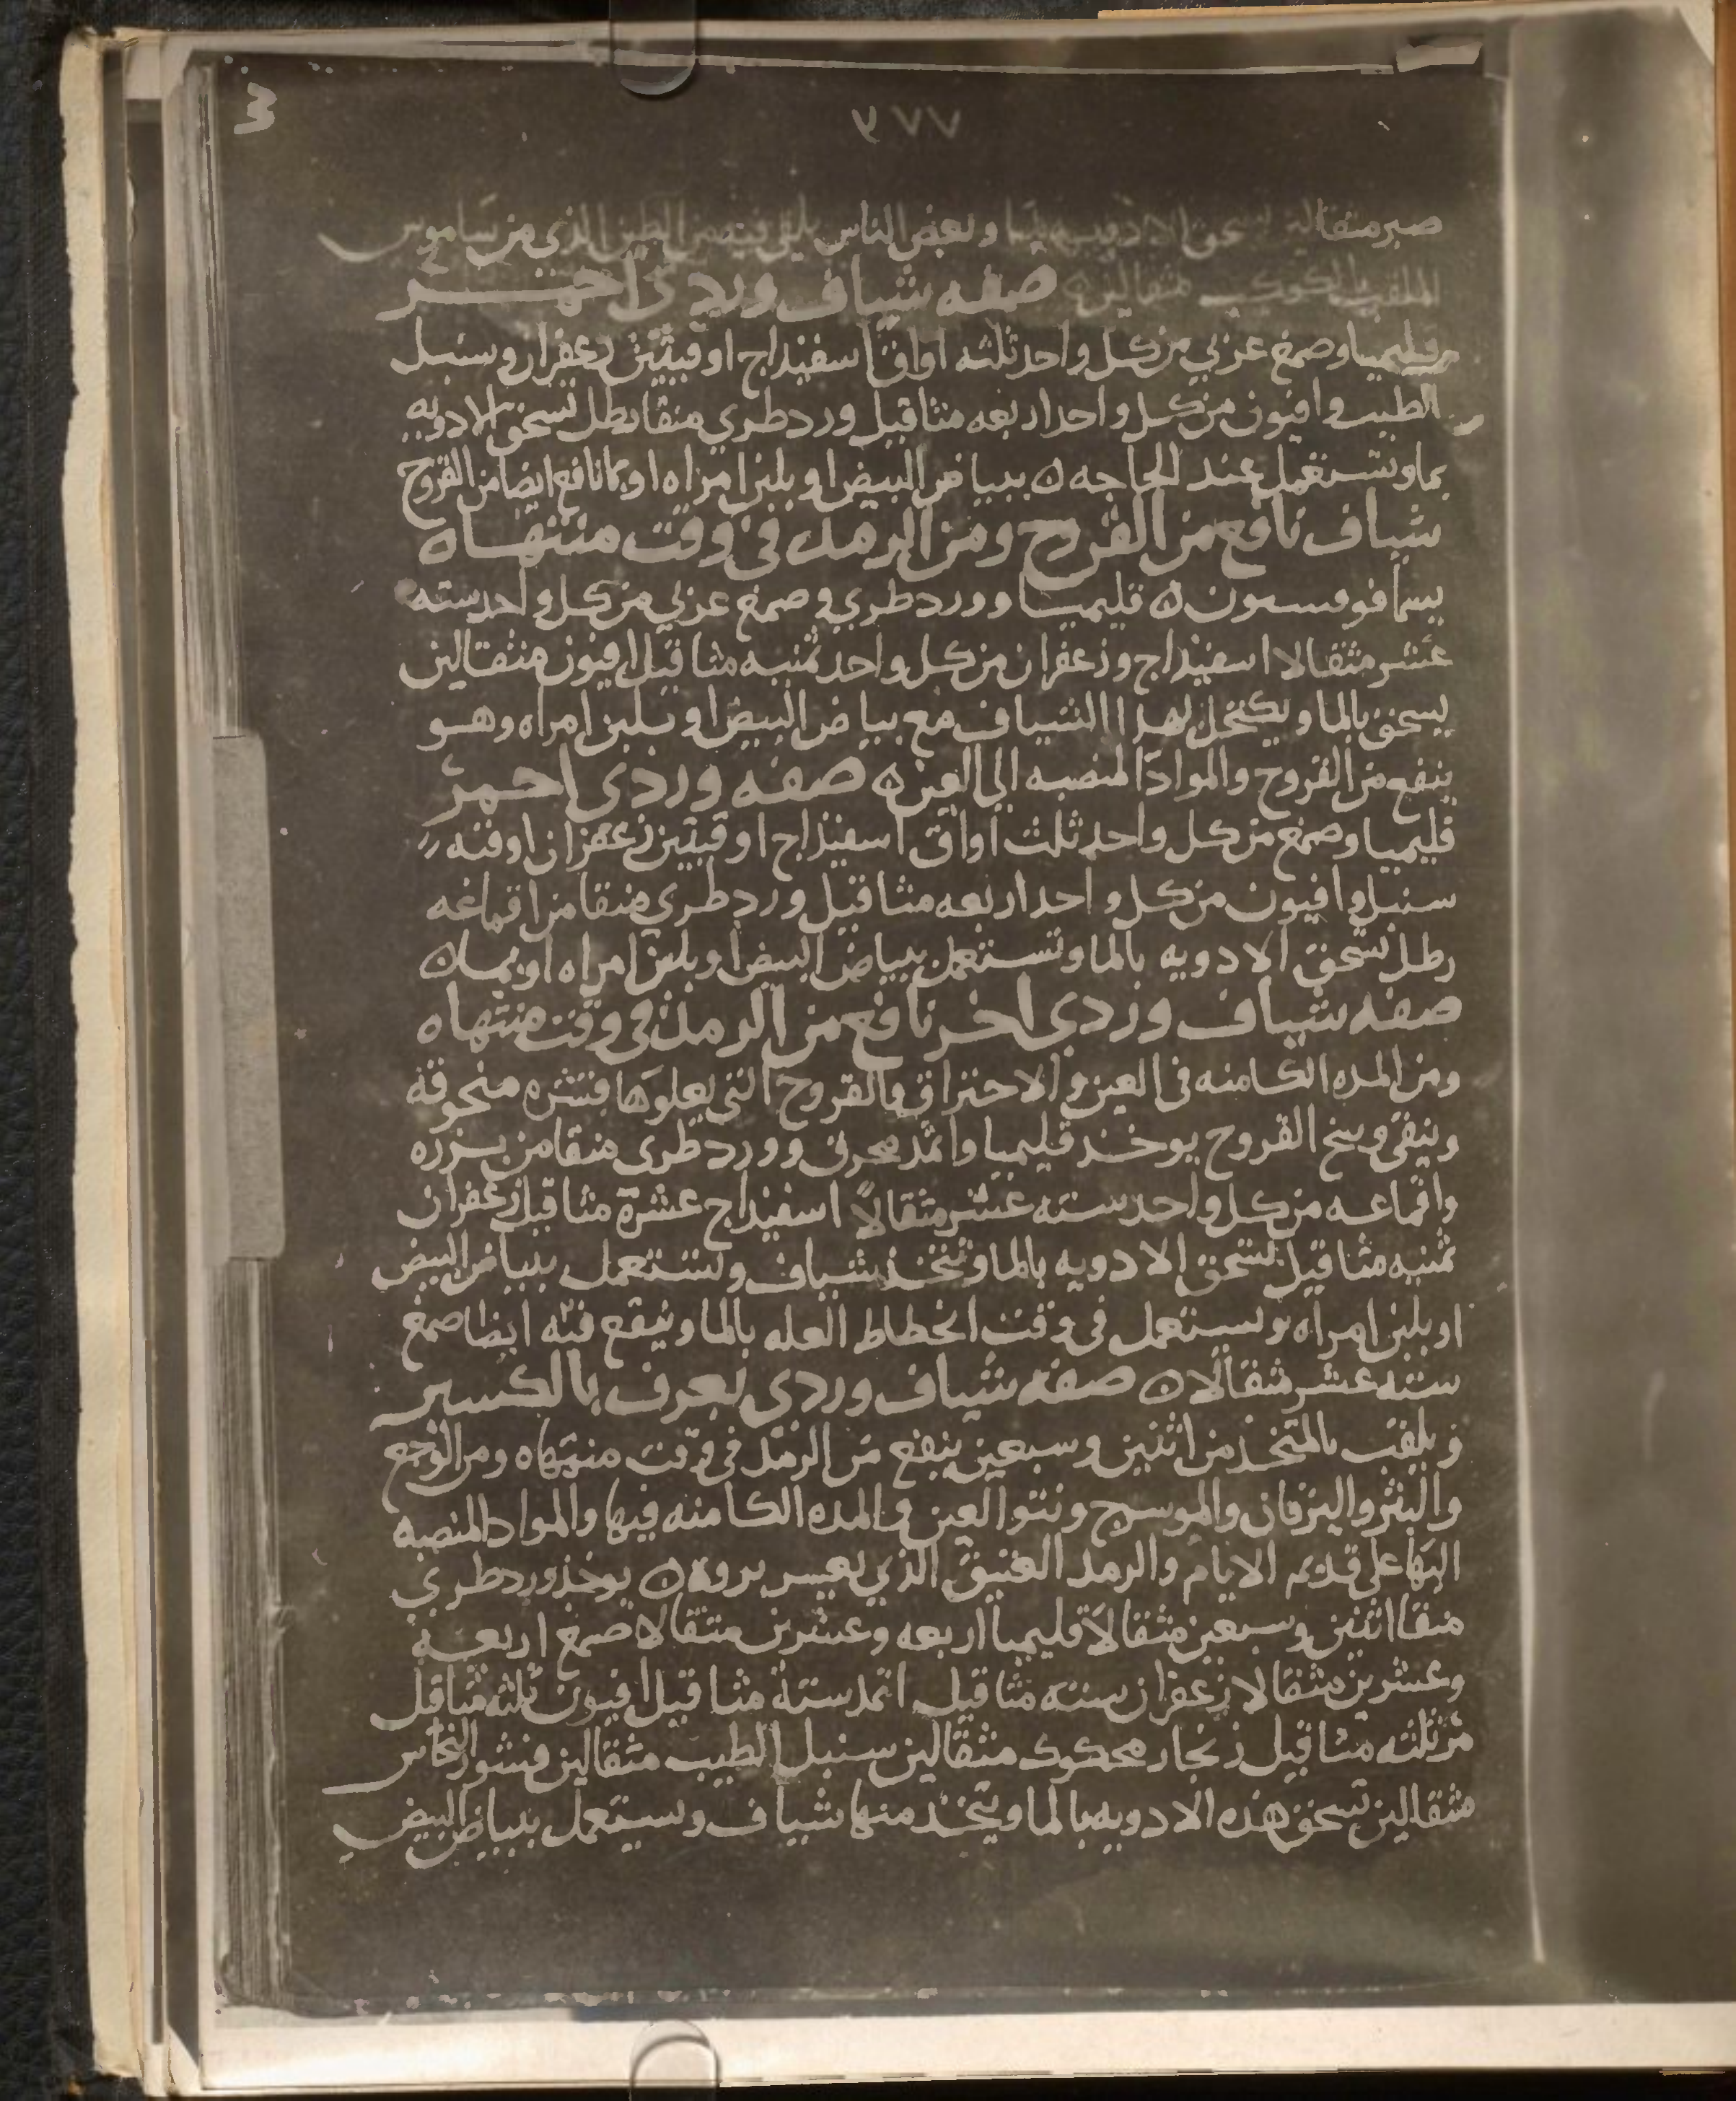 3
٧٧ ٩
صبر مثقالين تسحق الادويه بالما وبعض الناس يلقي فيه من الطين الذي من ساموس
الملقب بالكوكب مثقالين ه صفه شياف وردي احمر
قليميا وصمغ عربي من كل واحد ثلثه اواق اسفيداج اوقيتين زعفران وسنبل
الطيب وافيون من كل واحد اربعه مثاقيل ورد طري منقا رطل تسحق الادويه
بما وتستعمل عند الحاجه ه ببياض البيض او بلبن امراه او بما نافع ايضا من القروح
شياف نافع من القروح ومن الرمد في وقت منتهاه
قليميا وورد طري وصمغ عربي من كل واحد سته
عشر مثقالا اسفيداج وزعفران من كل واحد ثمنيه مثاقيل افيون مثقالين
يسحق بالما ويكتحل بهذا الشياف مع بياض البيض او بلبن امراه وهو
ينفع من القروح والمواد المنصبه الى العين ه صفه وردي احمر
قليميا وصمغ من كل واحد ثلث اواق اسفيذاج اوقيتين زعفران اوقيه
سنبل وافيون من كل واحد اربعه مثاقيل ورد طري منقا من اقماعه
رطل تسحق الادويه بالما وتستعمل ببياض البيض او بلبن امراه او بما ه
صفه شياف وردي اخر نافع من الرمد في وقت منتهاه
ومن المده الكامنه في العين والاحتراق والقروح التي يعلوها قشره محروقه
وينقي وسخ القروح يوخذ قليميا واثمد محرق وورد طري منقا من بزره
واقماعه من كل واحد سته عشر مثقالاً اسفيداج عشرة مثاقيل زعفران
ثمنيه مثاقيل تسحق الادويه بالما وتتخذ شياف وتستعمل ببياض البيض
او بلبن امراه وتستعمل في وقت انحطاط العله بالما وينقع فيه ايضا صمغ
سته عشر مثقالا ه صفه شياف وردي يعرف بالكسير
ويلقب بالمتخذ من اثنين وسبعين ينفع من الرمد في وقت منتهاه ومن الوجع
والبثر واليرقان والموسرج ونتو العين والمده الكامنه فيها والمواد المنصبه
اليها على قديم الايام والرمد العتيق الذي يعسر بروه ه يوخذ ورد طري
منقا اثنين وسبعين مثقالاً قليميا اربعه وعشرين مثقالا صمغ اربعه
وعشرين مثقالا زعفران سته مثاقيل اثمد سته مثاقيل افيون ثلثه مثاقيل
مر ثلثه مثاقيل زنجار محكوك مثقالين سنبل الطيب مثقالين قشور النحاس
مثقالين تسحق هذه الادويه بالما ويتخذ منها شياف وتستعمل ببياض البيض